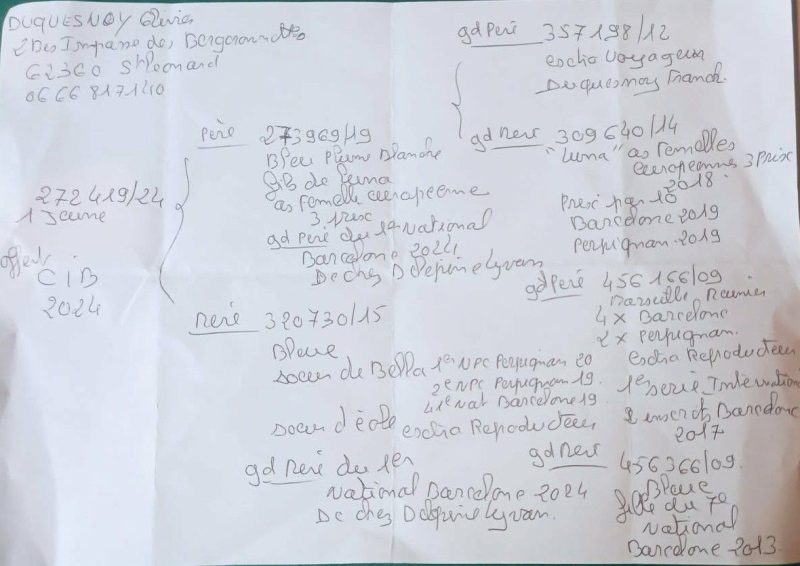 DUQUESNOY Olivier
2 Bis Impasse des Bergeronnettes
62360 St Leonard
06 66 81 71 40
272 419/24
1 Jeune
offert
CIB
2024
père 273969/19
Bleu plume Blanche
fils de Luna
as femelle européenne
3 prix
gd père du 1er National
Barcelone 2024
De chez Delepine Lyvan
Mere 320730/15
Bleue
soeur de Bella 1er NPC Perpignan 20
2e NPC Perpignan 19
41e Nat Barcelone 19
soeur d'école extra Reproducteur
gd Meré du 1er
National Barcelone 2024
De chez Delepine Lyvan.
gd père 357198/12
extra Voyageur
Duquesnoy Franck.
gd Mere 309640/14
"Luna" as femelles
européennes 3 prix
2018
Prise par 10
Barcelone 2019
Perpignan 2019
gd père 456166/09
Marseille Reunies
4 x Barcelone
2 x Perpignan.
extra Reproducteur
1e serie Internation
2 inscrits Barcelone
2017
gd Mere 456366/09.
Bleue
fille du 7e
National
Barcelone 2013.